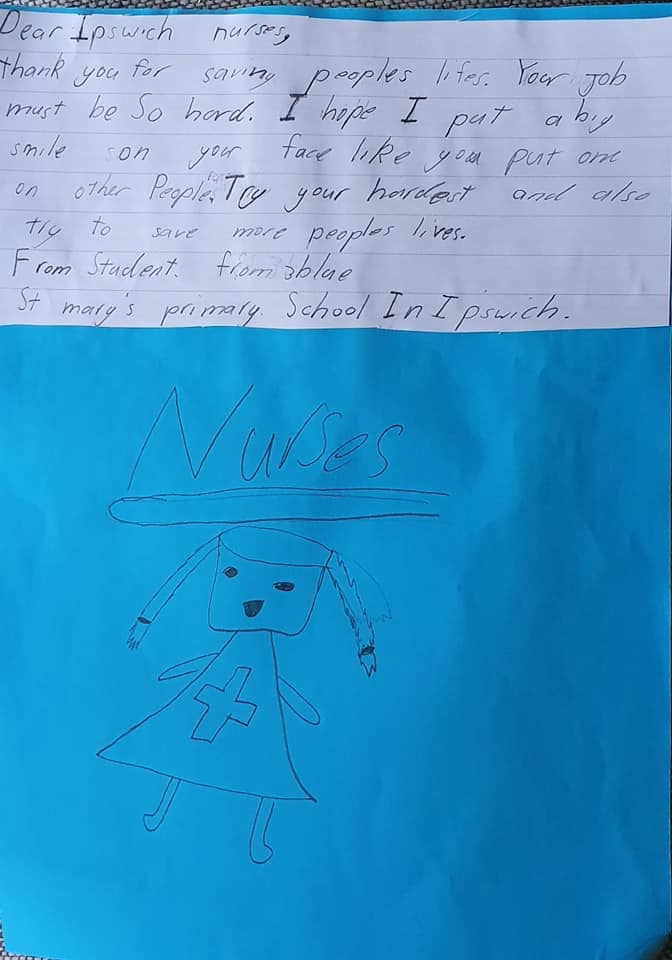 Dear Ipswich nurses,
thank you for saving peoples lifes. Your job
must be So hard. I hope I put a big
smile on your face like you put one
on other People. Try your hardest and also
try to save more peoples lives.
From Student. from 3blue
St mary's primary. School In Ipswich.
Nurses